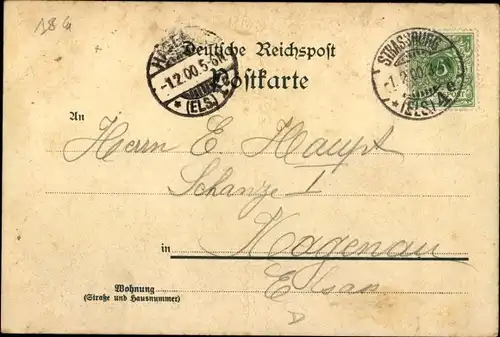 184
Deutsche Reichspost
Postkarte
-1.2.00.5-6N.
* (ELS)
STRASSBURG
-1.2.00.
* (ELS) 4e
5
An
Herrn E. Haupt
Schanze I
in Hagenau
Elsas
Wohnung
(Straße und Hausnummer)
D